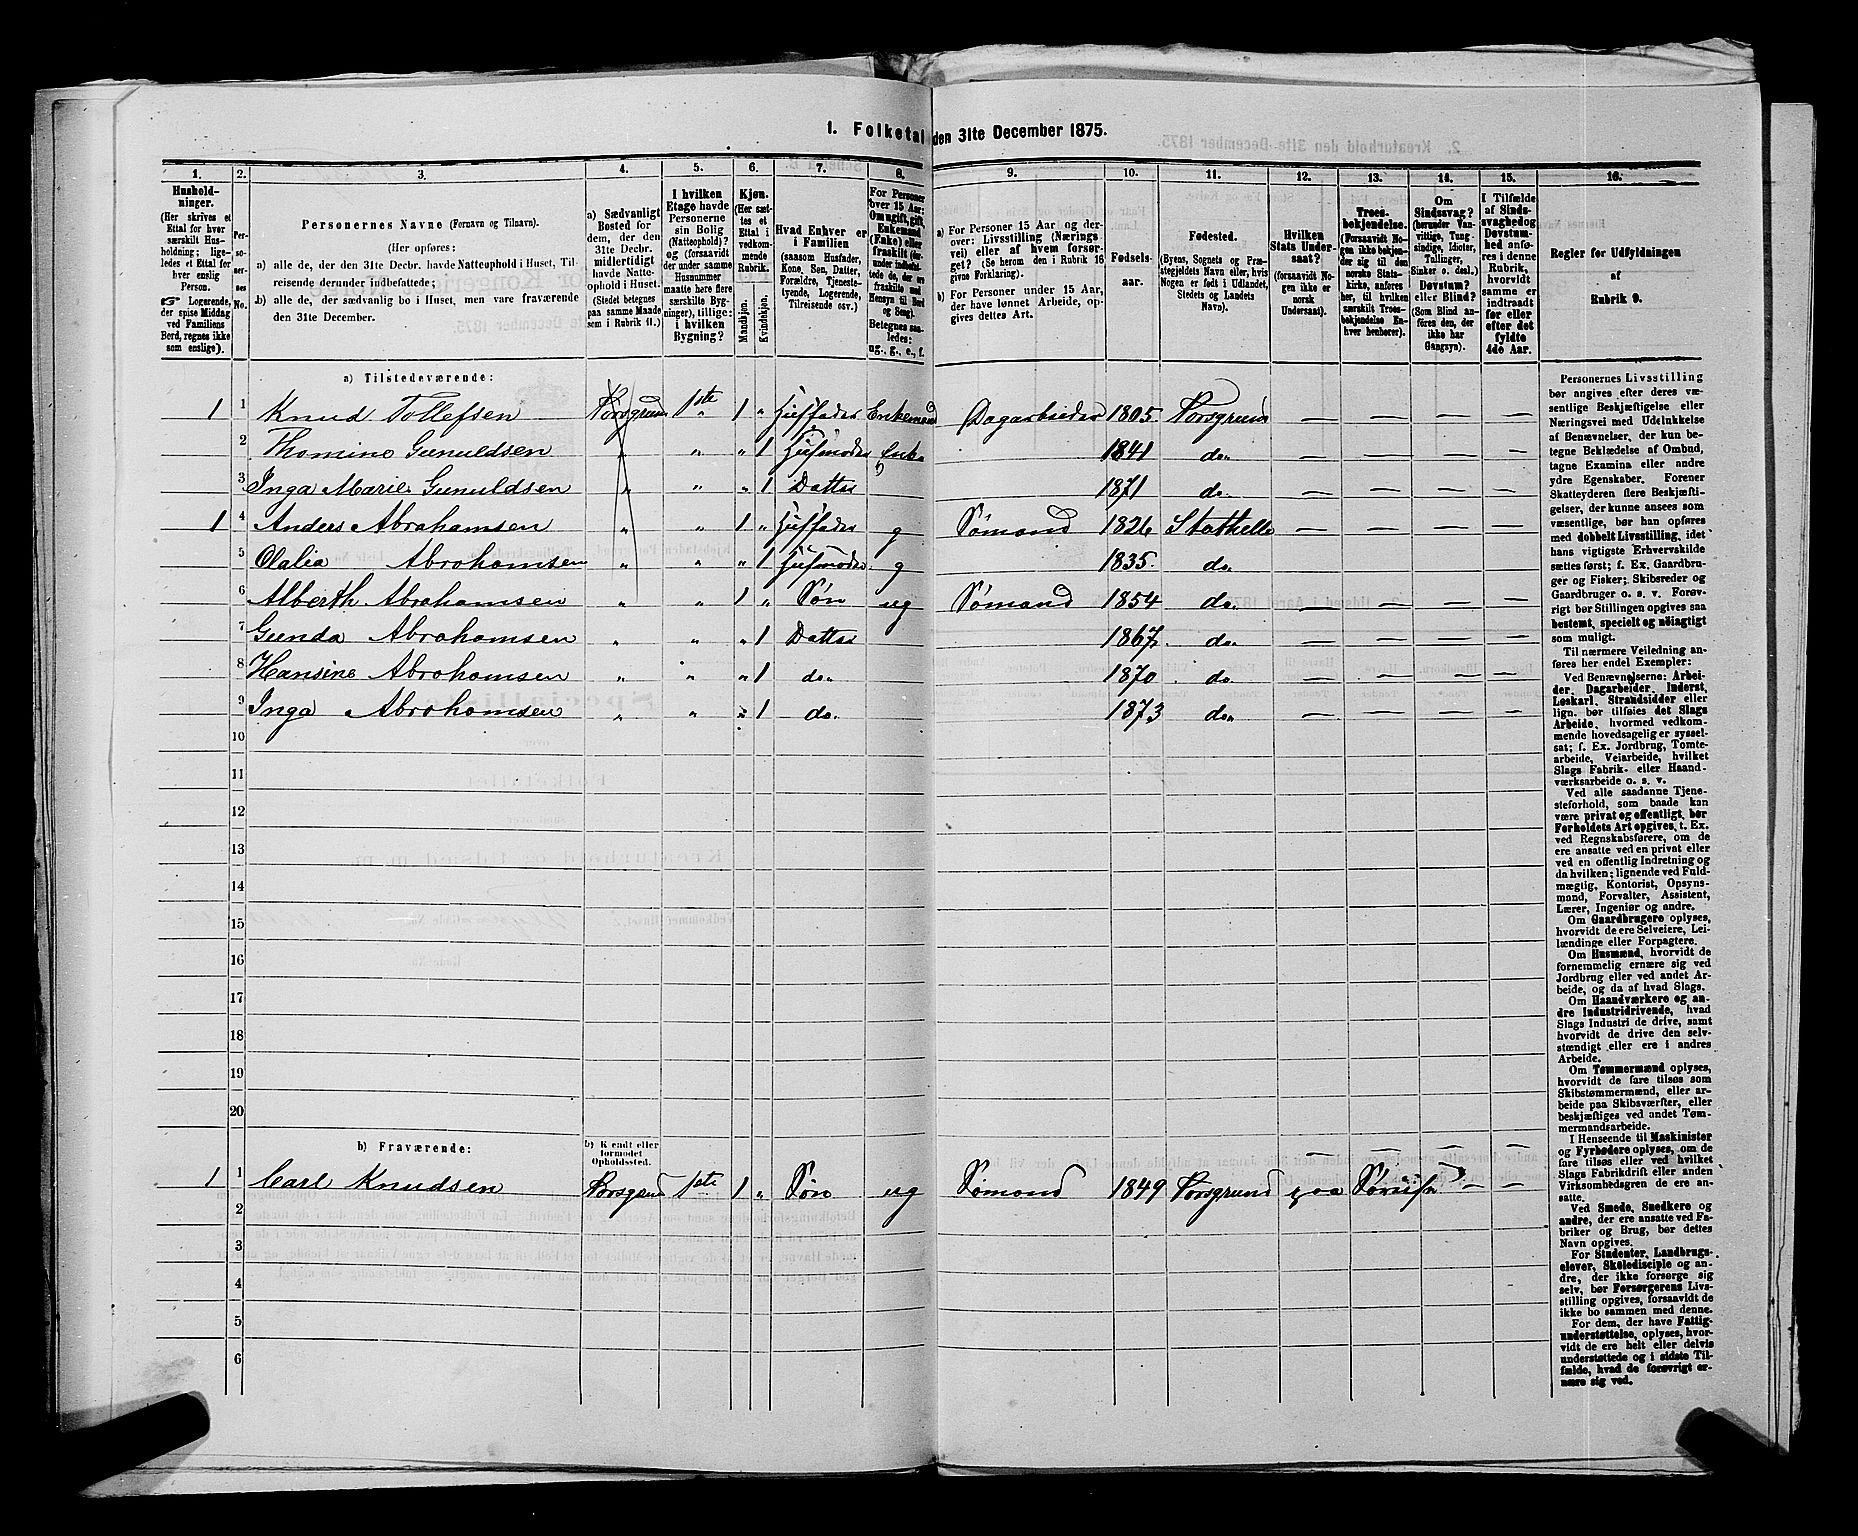 1. Folketal den 31te December 1875.
1. 2. 3. 4. 5. 6. 7. 8. 9. 10. 11. 12. 13. 14. 15. 16.
Hushold-
ninger.
(Her skrives et
Ettal for hver
særskilt Hus-
holdning; lige-
ledes et Ettal for
hver enslig
Person.
Logerende,
der spise Middag
ved Familiens
Bord, regnes ikke
som enslige).
Per-
so-
ner-
nes
No.
Personernes Navne (Fornavn og Tilnavn).
(Her opføres:
a) alle de, der den 31te Decbr. havde Natteophold i Huset, Til-
reisende derunder indbefattede;
b) alle de, der sædvanlig bo i Huset, men vare fraværende
den 31te December.
a) Sædvanligt
Bosted for
dem, der den
31te Decbr.
midlertidigt
havde Natte-
ophold i Huset.
(Stedet betegnes
paa samme Maade
som i Rubrik 11.)
I hvilken
Etage havde
Personerne
sin Bolig
(Natteophold)?
og (forsaavidt
der under samme
Husnummer
maatte høre flere
særskilte Byg-
ninger), tillige:
i hvilken
Bygning?
Kjøn.
(Her sæt-
tes et
Ettal i
vedkom-
mende
Rubrik.)
Mandkjøn.
Kvindekjøn.
Hvad Enhver er
i Familien
(saasom Husfader,
Kone, Søn, Datter,
Forældre, Tjeneste-
tyende, Logerende,
Tilreisende osv.)
For Personer
over 15 Aar:
Om ugift, gift
Enkemand
(Enke) eller
fraskilt (der-
under indbefat-
tede de, der ere
fraskilte med
Hensyn til Bord
og Seng).
Betegnes saa-
ledes:
ug., g., e., f.
a) For Personer 15 Aar og der-
over: Livsstilling (Nærings
vei) eller af hvem forsør-
get? (Se herom den i Rubrik 16
givne Forklaring).
b) For Personer under 15 Aar,
der have lønnet Arbeide, op-
gives dettes Art.
Fødsels-
aar.
Fødested.
(Byens, Sognets og Præ-
stegjeldets Navn eller, hvis
Nogen er født i Udlandet,
Stedets og Landets
Navn).
Hvilken
Stats Under-
saat?
(forsaavidt No-
gen ikke er
norsk
Undersaat).
Troes-
bekjendelse.
(Forsaavidt No-
gen ikke bekjen-
der sig til den
norske Stats-
kirke, anføres
her, til hvilken
særskilt Troes-
bekjendelse En-
hver henhører).
Om
Sindssvag?
(herunder Van-
vittige, Tung-
sindige, Idioter,
Tullinger,
Sinker o. desl.)
Døvstum?
eller Blind?
(Som Blind an-
føres den, der
ikke har
Gangsyn).
I Tilfælde
af Sinds-
svaghed og
Døvstum-
hed anfø-
res i denne
Rubrik,
hvorvidt
samme er
indtraadt
før eller
efter det
fyldte
4de Aar.
Regler for Udfyldningen
af
Rubrik 9.
a) Tilstedeværende:
1 1 Knud Tollefsen Porsgrund 1ste 1 „ Husfader Enkemand Dagarbeider 1805. Porsgrund — — — —
2 Thomine Gunuldsen „ „ „ 1 Husmoder Enke 1841 do. — — — —
3 Inga Marie Gunuldsen „ „ „ 1 Datter 1871 do. — — — —
1 4 Anders Abrahamsen „ „ 1 „ Husfader g Sømand 1826 Stathelle — — — —
5 Olalia Abrahamsen „ „ „ 1 Husmoder g 1835. do. — — — —
6 Alberth Abrahamsen „ „ 1 „ Søn ug Sømand 1854 do. — — — —
7 Gunda Abrahamsen „ „ „ 1 Datter 1867. do. — — — —
8 Hansine Abrahamsen „ „ „ 1 do. 1870 do. — — — —
9 Inga Abrahamsen „ „ „ 1 do. 1873 do. — — — —
10
11
12
13
14
15
16
17
18
19
20
b) Fraværende:
b) Kjendt eller
formodet
Opholdssted.
1 1 Carl Knudsen Porsgrund 1ste 1 „ Søn ug Sømand 1849 Porsgrund — —
2
3
4
5
6
Personernes Livsstilling
bør angives efter deres væ-
sentlige Beskjæftigelse eller
Næringsvei med Udelukkelse
af Benævnelser, der kun be-
tegne Beklædelse af Ombud,
tagne Examina eller andre
ydre Egenskaber. Forener
Skatteyderen flere Beskjæfti-
gelser, der kunne ansees som
væsentlige, bør han opføres
med dobbelt Livsstilling, idet
hans vigtigste Erhvervskilde
sættes først; f. Ex. Gaardbru-
ger og Fisker; Skibsreder og
Gaardbruger o. s. v. Forøv-
rigt bør Stillingen opgives saa
bestemt, specielt og nøiagtigt
som muligt.
Til nærmere Veiledning an-
føres her endel Exempler:
Ved Benævnelserne: Arbei-
der, Dagarbeider, Inderst,
Løskarl, Strandsidder eller
lign. bør tilføies det Slags
Arbeide, hvormed vedkom-
mende hovedsagelig er syssel-
sat; f. Ex. Jordbrug, Tomte-
arbeide, Veiarbeide, hvilket
Slags Fabrik- eller Haand-
værksarbeide o. s. v.
Ved alle saadanne Tjene-
steforhold, som baade kan
være privat og offentligt, bør
Forholdets Art opgives, t. Ex.
ved Regnskabsførere, om de
ere ansatte ved en privat eller
ved en offentlig Indretning og
da hvilken; lignende ved Fuld-
mægtig, Kontorist, Opsyns-
mand, Forvalter, Assistent,
Lærer, Ingeniør og andre.
Om Gaardbrugere oplyses,
hvorvidt de ere Selveiere, Lei-
lændinge eller Forpagtere.
Om Husmænd, hvorvidt de
fornemmelig ernære sig ved
Jordbrug eller ved andet Ar-
beide, og da af hvad Slags.
Om Haandværkere og an-
dre Industridrivende, hvad
Slags Industri de drive, samt
hvorvidt de drive den selv-
stændigt eller ere i andres
Arbeide.
Om Tømmermænd oplyses,
hvorvidt de fare tilsøs som
Skibstømmermænd, eller ar-
beide paa Skibsværfter, eller
beskjæftiges ved andet Tøm-
mermandsarbeide.
I Henseende til Maskinister
og Fyrbødere oplyses, om de
fare tilsøs eller ved hvilket
Slags Fabrikdrift eller anden
Virksomhedsgren de ere an-
satte.
Ved Smede, Snedkere og
andre, der ere ansatte ved Fa-
briker og Brug, bør dettes
Navn opgives.
For Studenter, Landbrugs-
elever, Skoledisciple og an-
dre, der ikke forsørge sig
selv, bør Forsørgerens Livs-
stilling opgives, forsaavidt de
ikke bo sammen med denne.
For dem, der have Fattig-
understøttelse, oplyses, hvor-
vidt de ere helt eller delvis
understøttede og i sidste Til-
fælde, hvad de forøvrigt er-
nære sig ved.